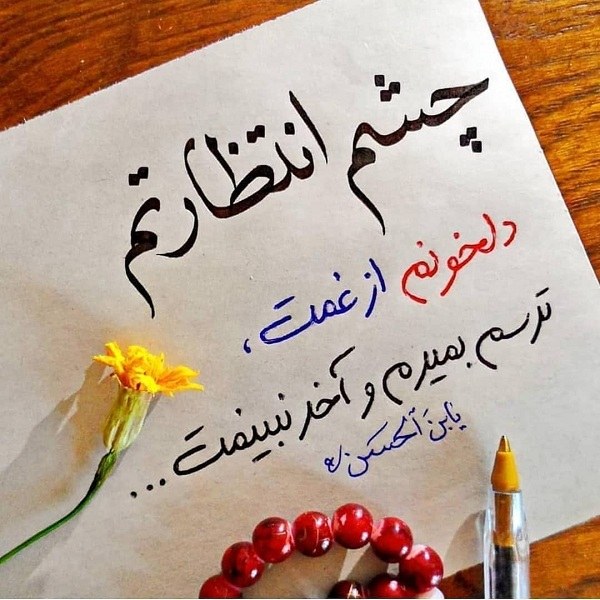 چشم انتظارتم
دلخونم از غمت،
ترسم بمیرم و آخر نبینمت...
یابن الحسن